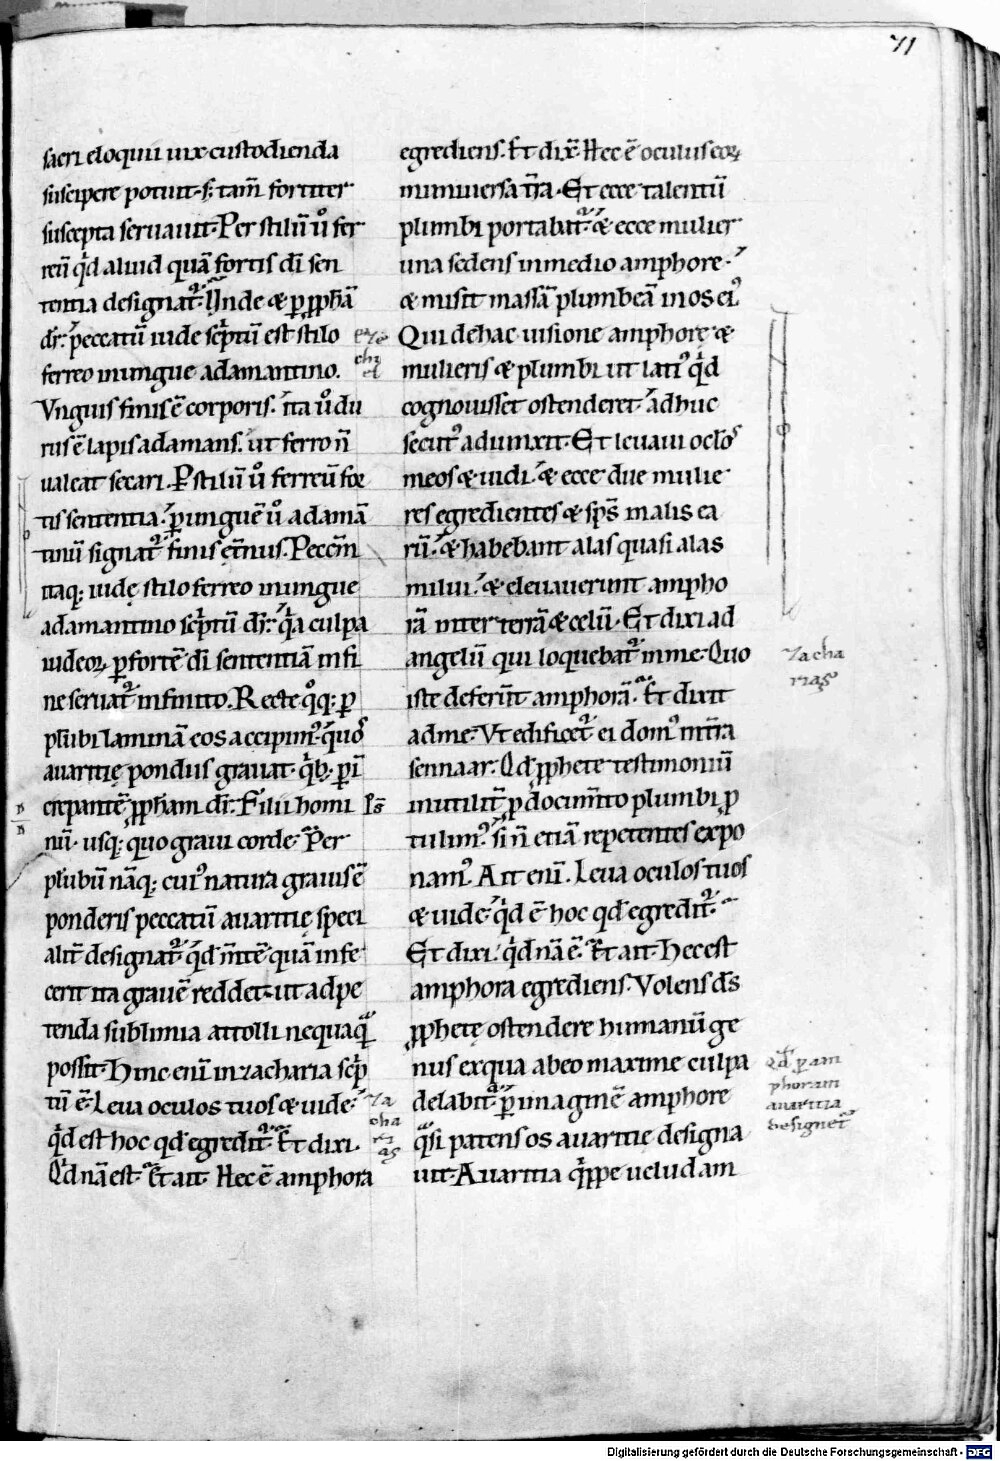 71
sacri eloquii uix custodienda
suscipere potuit· s; tam̄ fortiter
suscepta seruauit· Per stilū ů fer
reū qͥd aliud quā fortis dī sen
tentia designat᷑· Unde & ꝑ ꝓph̄ā
dr̄· peccatū iude scͥptū est stilo
ferreo in ungue adamantino.
Vnguis finis ē corporis· ita ů du
rus ē lapis adamans· ut ferro n̄
ualeat secari. P stilū ů ferreū for
tis sententia· ꝑ unguē ů adamā
tinū signat᷑ finis et̄nus. Peccm̄
itaq; iudę stilo ferreo in ungue
adamantino scͥptū dr̄· qͥa culpa
iudeoꝝ ꝑ fortē dī sententiā in fi
ne seruat᷑ in finito. Recte qͦq; ꝑ
plūbi laminā eos accipimꝰ· quoſ
auaritię pondus grauat· qͥb; ꝑ ī
crepantē ꝓph̄am dr̄· Filii homi
nū· usq; quo graui corde· Per
plūbū nāq; cuiꝰ natura grauis ē
ponderis peccatū auaritię speci
alit̄ designat᷑· qͩ m̄tē quā infe
cerit ita grauē reddet· ut ad pe
tenda sublimia attolli nequaqͣ
possit· Hinc enī in zacharia scͥp
tū ē· Leua oculos tuos & uide·
qͥd est hoc qd̄ egredit᷑· Et dixi·
Qͥd nā est· Et ait· Hec ē amphora
eze
chi
el
Ps̄
Za
cha
ri
as
egrediens· Et dix̄· Hec ē oculus eoꝝ
in uniuersa t̄ra· Et ecce talentū
plumbi portabat᷑· & ecce mulier
una sedens in medio amphore·
& misit massā plumbeā in os eiꝰ
Qui de hac uisione amphorę &
mulieris & plumbi ut latiꝰ qͥd
cognouisset ostenderet· adhuc
secutꝰ adiunxit· Et leuaui ocl̄os
meos & uidi· & ecce due mulie
res egredientes & sp̄s in alis ea
rū· & habebant alas quasi alas
milui· & eleuauerunt ampho
rā inter terrā & celū· Et dixi ad
angelū qui loquebat᷑ in me· Quo
iste deferūt amphorā· Et dixit
ad me· Vt edificet᷑ ei domꝰ in t̄ra
sennaar· Qd̄ ꝓphete testimoniū
inutilit̄ ꝓ documto plumbi ꝓ
tulimꝰ· si n̄ etiā repetentes expo
namꝰ. Ait enī. Leua oculos tuos
& uide· qͥd ē hoc qd̄ egredit᷑·
Et dixi· qͥd nā ē· Et ait· Hec est
amphora egrediens· Volens dn̄s
ꝓphetę ostendere humanū ge
nus ex qua abeo maxime culpa
delabit᷑· ꝑ imaginē amphore
qͣsi patens os auaritie designa
uit· Auaritia qͥppe uelud am
Zacha
rias
Qd̄ ꝑ am
phoram
auaritia
designet᷑
Digitalisierung gefördert durch die Deutsche Forschungsgemeinschaft - DFG